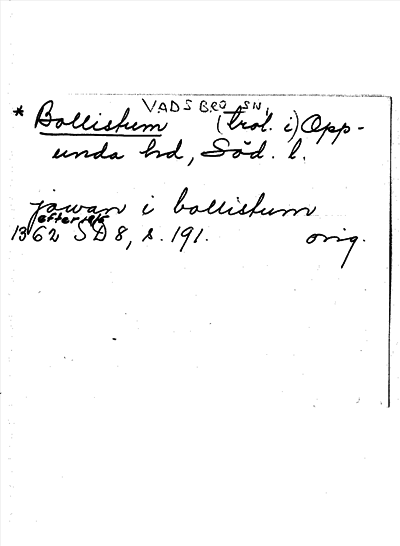 VADSBRO SN,
* Bollistum (trol. i) Opp-
unda hd, Söd. l.
jowan i bollistum
efter
1362 SD 8, s. 191. orig.